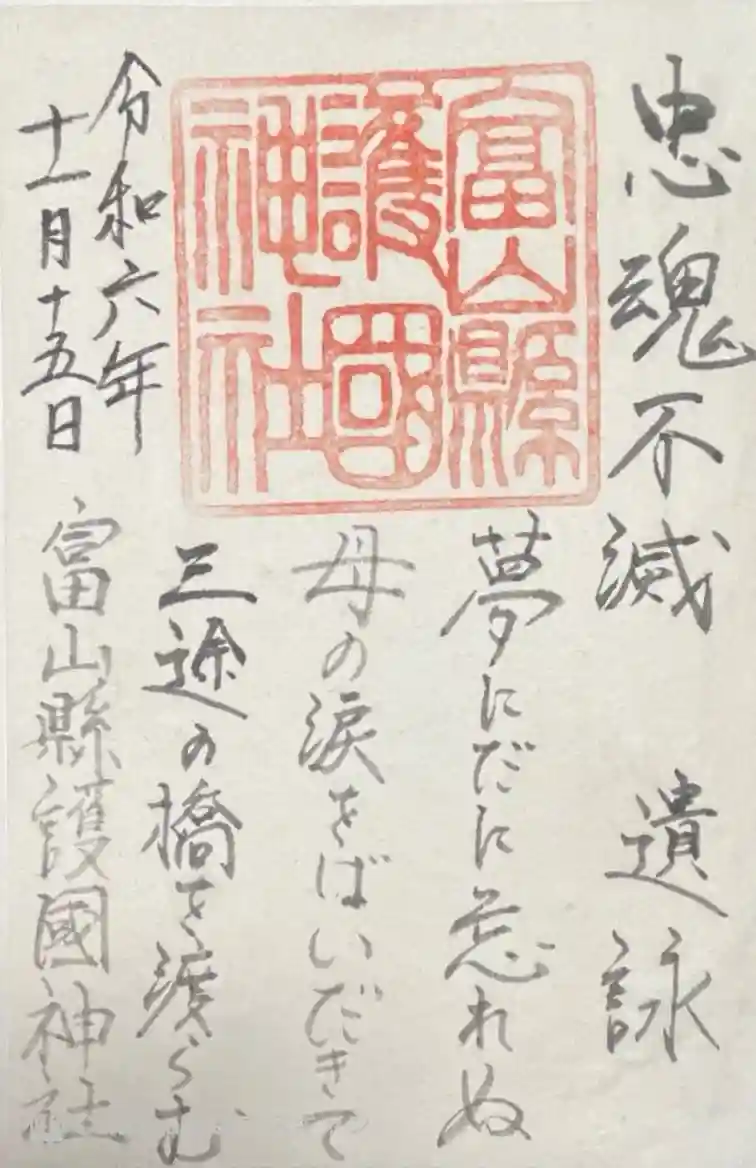 忠魂不滅 遺詠
富山縣
護國
神社
夢にだに忘れぬ
母の涙をばいだきて
三途の橋を渡らむ
令和六年
十一月十五日
富山縣護國神社